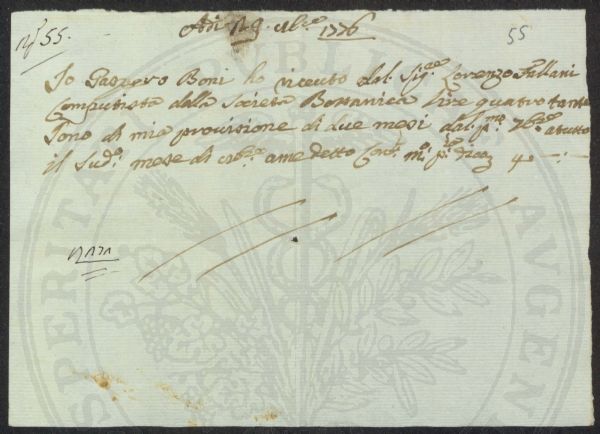 N.° 55.
Adi 29. 8b.re 1776
55
Io Gaspero Boni ho riceuto dal Sig.re Lorenzo Fallani
Computista della Società Bottanica lire quatro tante
Sono di mia provisione di due mesi dal p.mo 7b.re a tutto
il Sud.o mese di 8b.re a me detto Cont.
4